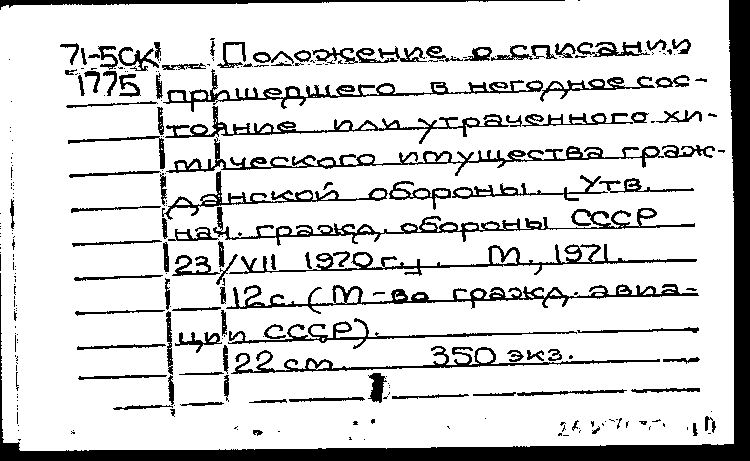 71-50к Положение о списании
1775 пришедшего в негодное сос-
тояние или утраченного хи-
мического имущества граж-
данской обороны. [Утв.
нач. гражд. обороны СССР
23/VII 1970г.]. М., 1971.
12с. (М-во гражд. авиа-
ции СССР).
22 см. 350 экз.